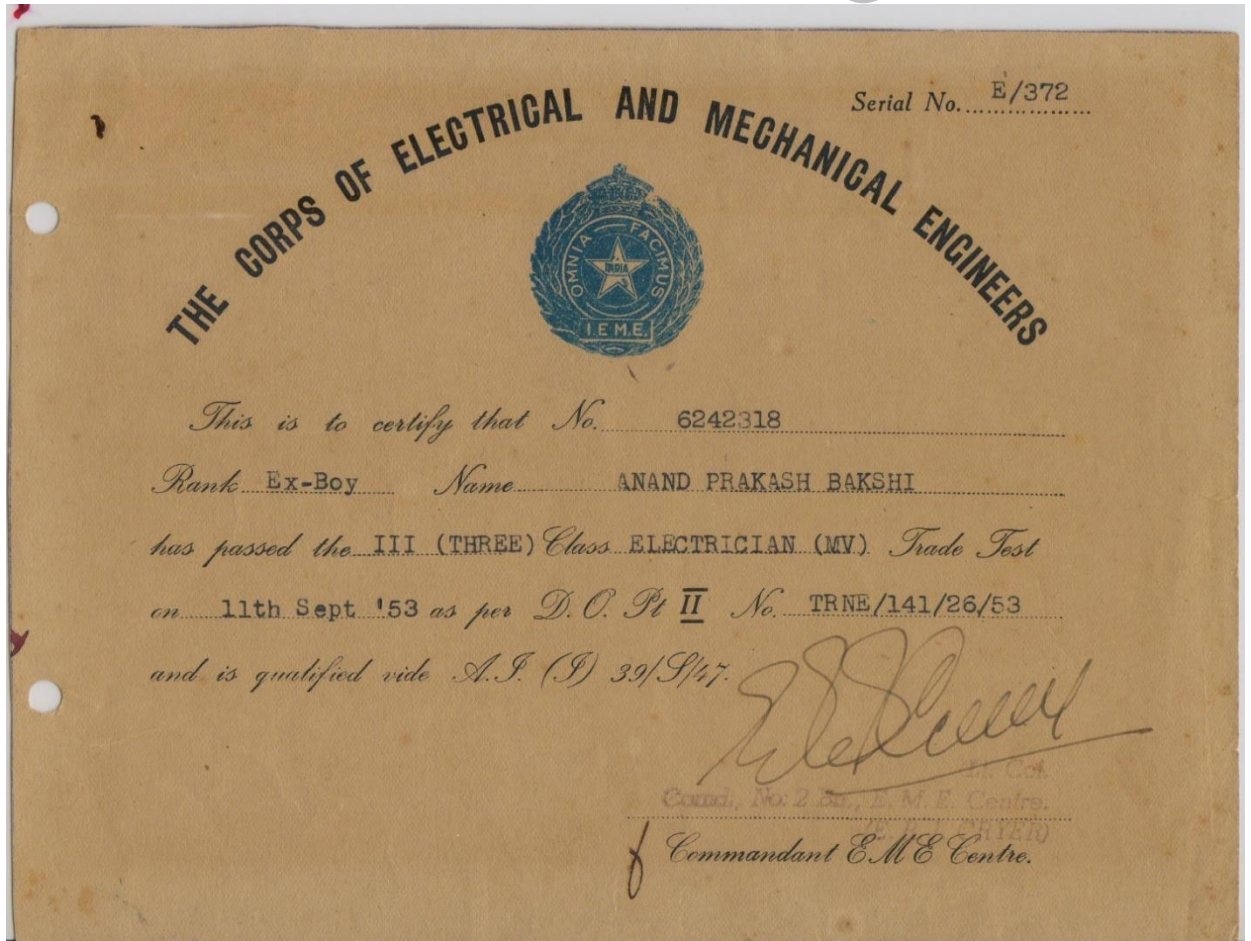 Serial No. E/372
THE CORPS OF ELECTRICAL AND MECHANICAL ENGINEERS
OMNIA FACIMUS
INDIA
I.E.M.E.
This is to certify that No. 6242318
Rank Ex-Boy Name ANAND PRAKASH BAKSHI
has passed the III (THREE) Class ELECTRICIAN (MV) Trade Test
on 11th Sept '53 as per D. O. Pt II No. TRNE/141/26/53
and is qualified vide A.I. (I) 39/S/47.
Lt. Col.
Comd., No: 2 Bn., E. M. E. Centre.
Commandant EME Centre.